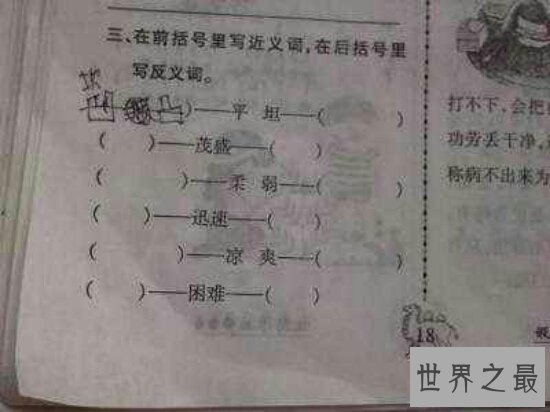 三、在前括号里写近义词,在后括号里
写反义词。
)——平 坦——( )
( )——茂盛——( )
( )——柔 弱——( )
( )——迅速——( )
( )——凉 爽——( )
( )——困难——( )
打不下,会把
功劳丢干净,
称病不出来为
18
世界之最